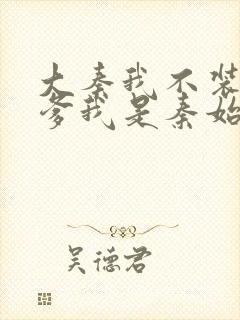 大秦我不装
爹我是秦始
吴德君